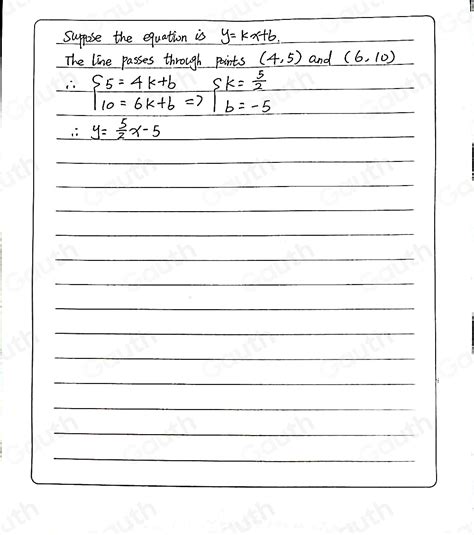 Suppose the equation is y=kx+b.
The line passes through points (4,5) and (6,10)
∴ {5=4k+b {k=5/2
10=6k+b => b=-5
∴ y=5/2x-5
Gauth